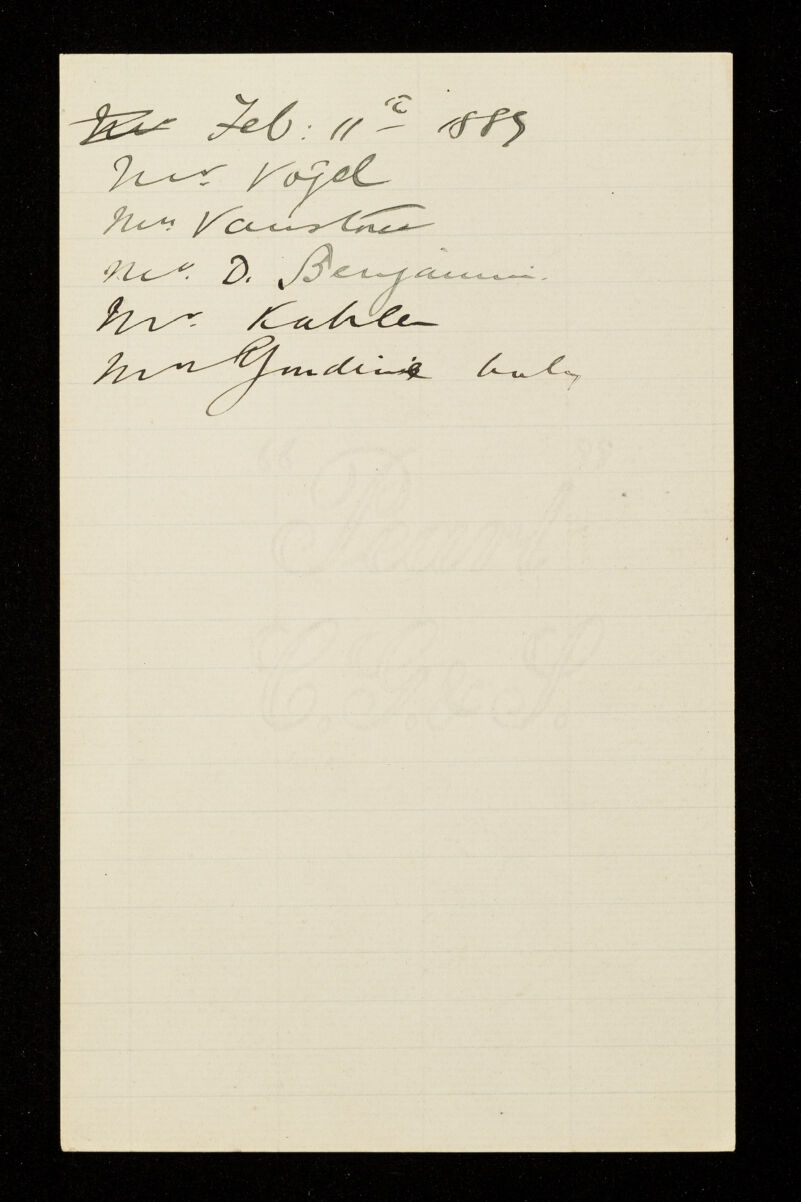 Feb: 11th 1889
Mr. Vogel
Mrs Vanstone
Mr. D. Benjamin.
Mr. Kahler
Mrs baby
"Pearl"
C. G. & S.